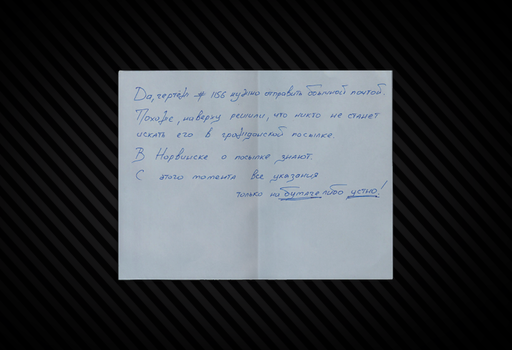 Да, чертёж № 1156 нужно отправить обычной почтой.
Похоже, наверху решили, что никто не станет
искать его в гражданской посылке.
В Норвинске о посылке знают.
С этого момента все указания
только на бумаге либо устно!